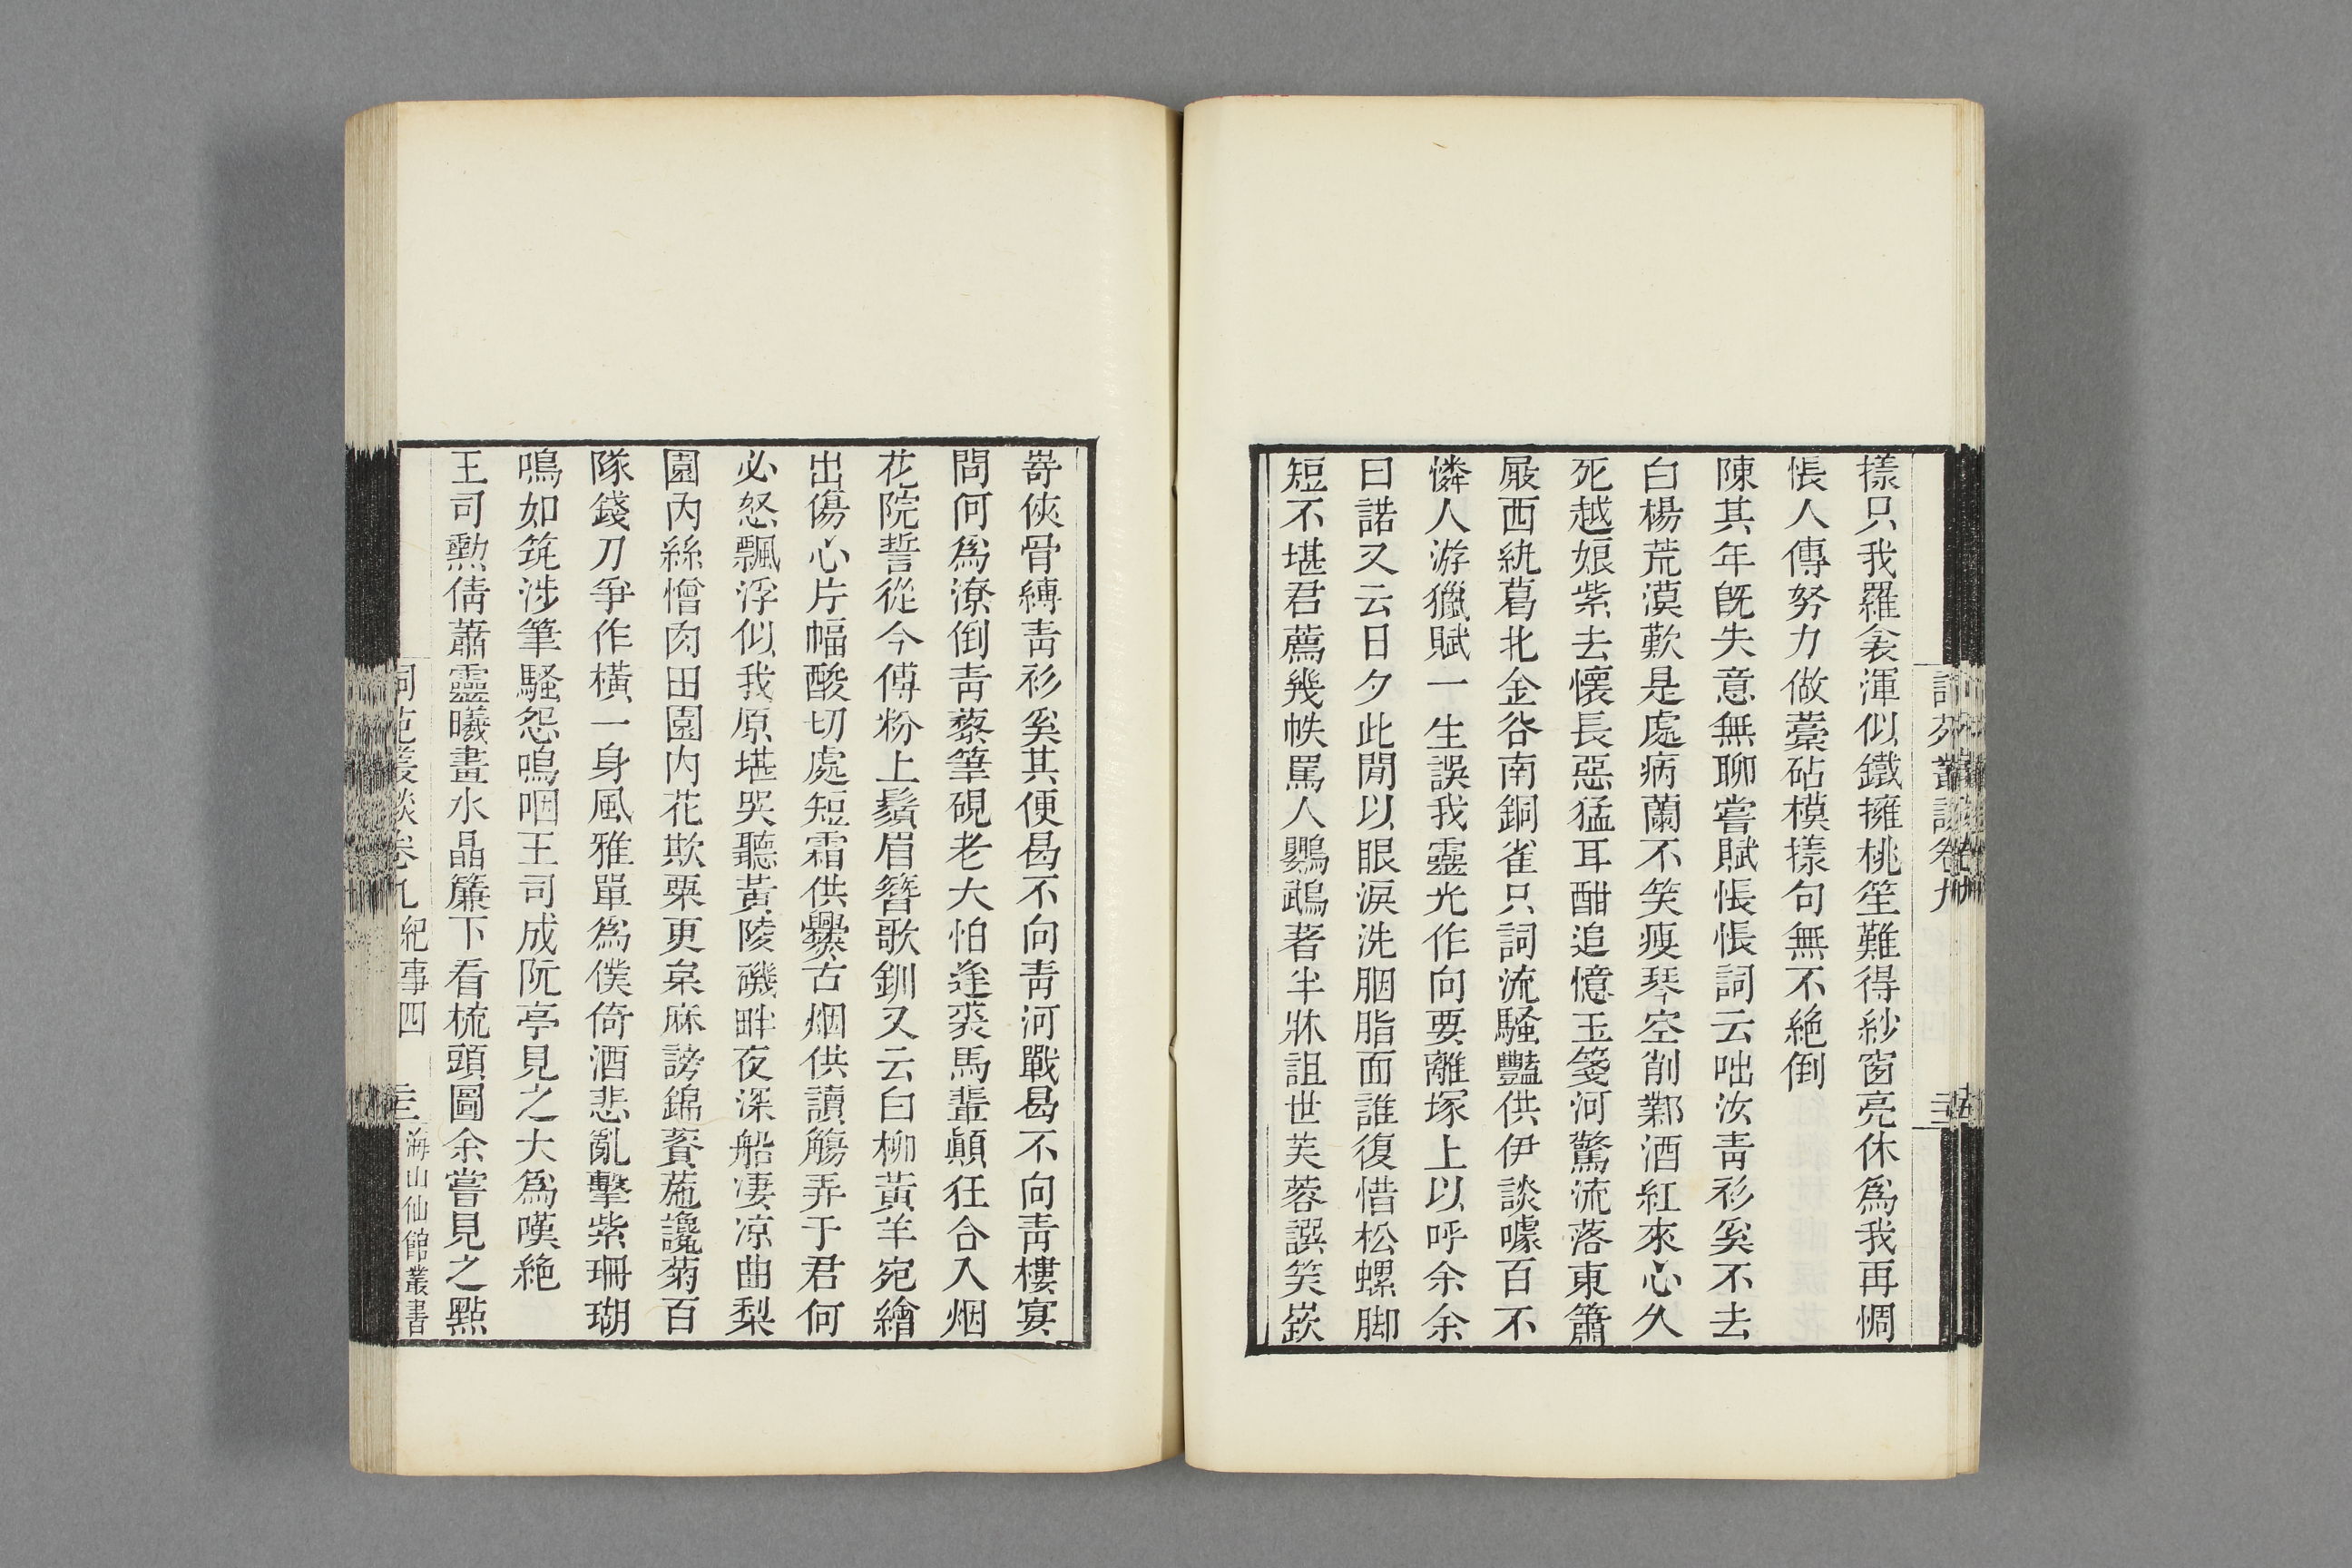 樣只我羅衾渾似鐵擁桃笙難得紗窗亮休爲我再惆
悵人傳努力做藁砧模樣句無不絶倒
陳其年旣失意無聊嘗賦悵悵詞云咄汝靑衫叟不去
白楊荒漠歎是處病蘭不笑瘦琴空削鄴酒紅來心久
死越娘紫去懷長惡猛耳酣追憶玉箋河驚流落東簫
屐西紈葛北金谷南銅雀只詞流騷豔供伊談噱百不
憐人游獵賦一生誤我靈光作向要離塚上以呼余余
曰諾又云日夕此閒以眼淚洗胭脂面誰復惜松螺脚
短不堪君薦幾帙罵人鸚鵡著半牀詛世芙蓉譔笑嶔
嵜俠骨縛靑衫奚其便曷不向靑河戰曷不向靑樓宴
問何爲潦倒靑藜筆硯老大怕逢裘馬輩顚狂合入烟
花院誓從今傅粉上鬚眉簪歌釧又云白柳黃羊宛繪
出傷心片幅酸切處短霜供爨古烟供讀觴弄于君何
必怒飄浮似我原堪哭聽黃陵磯畔夜深船凄凉曲梨
園內絲憎肉田園內花欺粟更枲麻謗錦薋葹讒菊百
隊錢刀爭作橫一身風雅單爲僕倚酒悲亂擊紫珊瑚
鳴如筑涉筆騷怨嗚咽王司成阮亭見之大爲嘆絶
王司勲倩蕭靈曦畫水晶簾下看梳頭圖余嘗見之點
詞苑叢談卷九 紀事四 海山仙館叢書